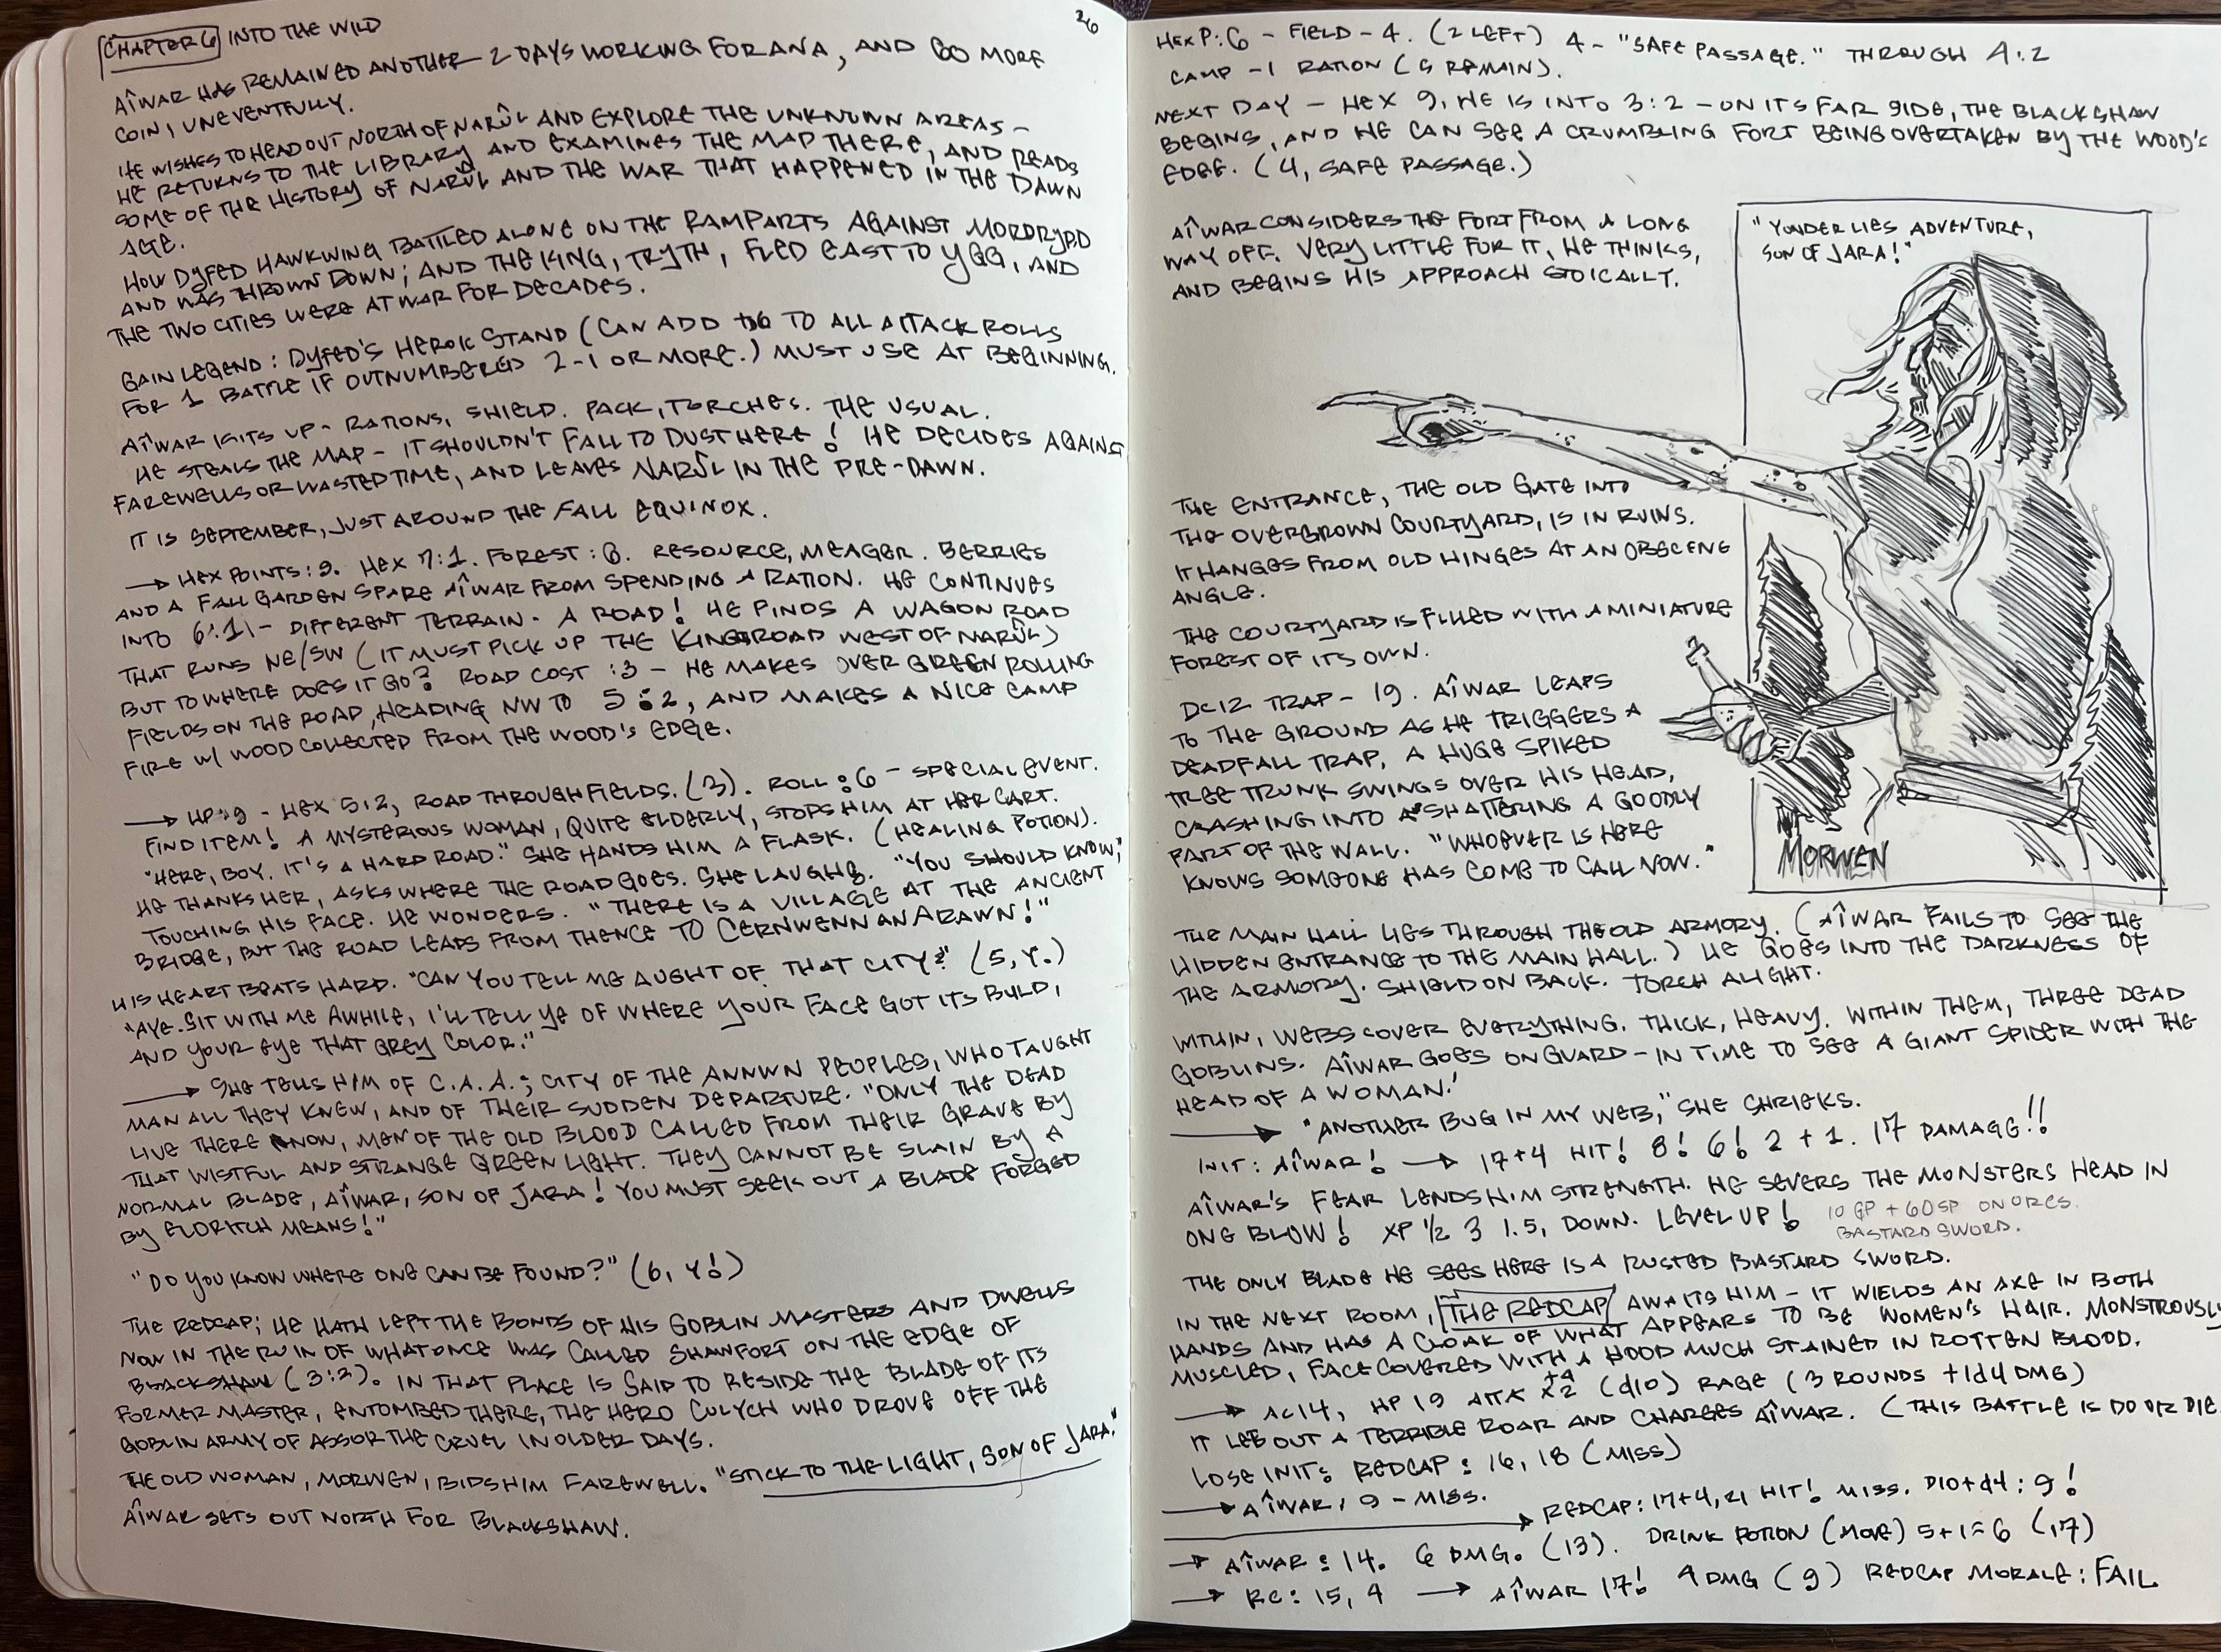 CHAPTER 6 INTO THE WILD
26
AÎWAR HAS REMAINED ANOTHER 2 DAYS WORKING FOR ANA, AND 60 MORE
COIN, UNEVENTFULLY.
HE WISHES TO HEAD OUT NORTH OF NARÛL AND EXPLORE THE UNKNOWN AREAS –
HE RETURNS TO THE LIBRARY AND EXAMINES THE MAP THERE, AND READS
SOME OF THE HISTORY OF NARÛL AND THE WAR THAT HAPPENED IN THE DAWN
AGE.
HOW DYFED HAWKWING BATTLED ALONE ON THE RAMPARTS AGAINST MORDRYDD
AND WAS THROWN DOWN; AND THE KING, TRYTH, FLED EAST TO YGG, AND
THE TWO CITIES WERE AT WAR FOR DECADES.
GAIN LEGEND: DYFED'S HEROIC STAND (CAN ADD +D6 TO ALL ATTACK ROLLS
FOR 1 BATTLE IF OUTNUMBERED 2-1 OR MORE.) MUST USE AT BEGINNING.
AÎWAR KITS UP – RATIONS, SHIELD. PACK, TORCHES. THE USUAL.
HE STEALS THE MAP – IT SHOULDN'T FALL TO DUST HERE! HE DECIDES AGAINST
FAREWELLS OR WASTED TIME, AND LEAVES NARÛL IN THE PRE-DAWN.
IT IS SEPTEMBER, JUST AROUND THE FALL EQUINOX.
→ HEX POINTS: 9. HEX 7:1. FOREST: 6. RESOURCE, MEAGER. BERRIES
AND A FALL GARDEN SPARE AÎWAR FROM SPENDING A RATION. HE CONTINUES
INTO 6:1 – DIFFERENT TERRAIN. A ROAD! HE FINDS A WAGON ROAD
THAT RUNS NE/SW (IT MUST PICK UP THE KINGROAD WEST OF NARÛL)
BUT TO WHERE DOES IT GO? ROAD COST: 3 – HE MAKES OVER GREEN ROLLING
FIELDS ON THE ROAD, HEADING NW TO 5:2, AND MAKES A NICE CAMP
FIRE W/ WOOD COLLECTED FROM THE WOOD'S EDGE.
→ HP: 9 – HEX 5:2, ROAD THROUGH FIELDS. (3). ROLL: 6 – SPECIAL EVENT.
FIND ITEM! A MYSTERIOUS WOMAN, QUITE ELDERLY, STOPS HIM AT HER CART.
"HERE, BOY. IT'S A HARD ROAD." SHE HANDS HIM A FLASK. (HEALING POTION).
HE THANKS HER, ASKS WHERE THE ROAD GOES. SHE LAUGHS. "YOU SHOULD KNOW,"
TOUCHING HIS FACE. HE WONDERS. "THERE IS A VILLAGE AT THE ANCIENT
BRIDGE, BUT THE ROAD LEADS FROM THENCE TO CERNWENN AN ARAWN!"
HIS HEART BEATS HARD. "CAN YOU TELL ME AUGHT OF THAT CITY?" (5, Y.)
"AYE. SIT WITH ME AWHILE, I'LL TELL YE OF WHERE YOUR FACE GOT ITS BUILD,
AND YOUR EYE THAT GREY COLOR."
→ SHE TELLS HIM OF C.A.A.; CITY OF THE ANNWN PEOPLES, WHO TAUGHT
MAN ALL THEY KNEW, AND OF THEIR SUDDEN DEPARTURE. "ONLY THE DEAD
LIVE THERE NOW, MEN OF THE OLD BLOOD CALLED FROM THEIR GRAVE BY
THAT WISTFUL AND STRANGE GREEN LIGHT. THEY CANNOT BE SLAIN BY A
NORMAL BLADE, AÎWAR, SON OF JARA! YOU MUST SEEK OUT A BLADE FORGED
BY ELDRITCH MEANS!"
"DO YOU KNOW WHERE ONE CAN BE FOUND?" (6, Y!)
THE REDCAP; HE HATH LEFT THE BONDS OF HIS GOBLIN MASTERS AND DWELLS
NOW IN THE RUIN OF WHAT ONCE WAS CALLED SHAWFORT ON THE EDGE OF
BLACKSHAW (3:2). IN THAT PLACE IS SAID TO RESIDE THE BLADE OF ITS
FORMER MASTER, ENTOMBED THERE, THE HERO CULYCH WHO DROVE OFF THE
GOBLIN ARMY OF ASSOR THE CRUEL IN OLDER DAYS.
THE OLD WOMAN, MORWEN, BIDS HIM FAREWELL. "STICK TO THE LIGHT, SON OF JARA."
AÎWAR SETS OUT NORTH FOR BLACKSHAW.
HEX P: 6 – FIELD – 4. (2 LEFT) 4 – "SAFE PASSAGE." THROUGH 4:2
CAMP – 1 RATION (5 REMAIN).
NEXT DAY – HEX 9, HE IS INTO 3:2 – ON ITS FAR SIDE, THE BLACKSHAW
BEGINS, AND HE CAN SEE A CRUMBLING FORT BEING OVERTAKEN BY THE WOOD'S
EDGE. (4, SAFE PASSAGE.)
AÎWAR CONSIDERS THE FORT FROM A LONG
WAY OFF. VERY LITTLE FOR IT, HE THINKS,
AND BEGINS HIS APPROACH STOICALLY.
"YONDER LIES ADVENTURE,
SON OF JARA!"
THE ENTRANCE, THE OLD GATE INTO
THE OVERGROWN COURTYARD, IS IN RUINS.
IT HANGES FROM OLD HINGES AT AN OBSCENE
ANGLE.
THE COURTYARD IS FILLED WITH A MINIATURE
FOREST OF ITS OWN.
DC12 TRAP – 19. AÎWAR LEAPS
TO THE GROUND AS HE TRIGGERS A
DEADFALL TRAP, A HUGE SPIKED
TREE TRUNK SWINGS OVER HIS HEAD,
CRASHING INTO & SHATTERING A GOODLY
PART OF THE WALL. "WHOEVER IS HERE
KNOWS SOMEONE HAS COME TO CALL NOW."
MORWEN
THE MAIN HALL LIES THROUGH THE OLD ARMORY. (AÎWAR FAILS TO SEE THE
HIDDEN ENTRANCE TO THE MAIN HALL.) HE GOES INTO THE DARKNESS OF
THE ARMORY. SHIELD ON BACK. TORCH ALIGHT.
WITHIN, WEBS COVER EVERYTHING. THICK, HEAVY. WITHIN THEM, THREE DEAD
GOBLINS. AÎWAR GOES ON GUARD – IN TIME TO SEE A GIANT SPIDER WITH THE
HEAD OF A WOMAN!
→ "ANOTHER BUG IN MY WEB," SHE SHRIEKS.
INIT: AÎWAR! → 17+4 HIT! 8! 6! 2 + 1. 17 DAMAGE!!
AÎWAR'S FEAR LENDS HIM STRENGTH. HE SEVERS THE MONSTERS HEAD IN
ONE BLOW! XP 1/2 3 1.5, DOWN. LEVEL UP! 10 GP + 60 SP ON ORCS.
BASTARD SWORD.
THE ONLY BLADE HE SEES HERE IS A RUSTED BASTARD SWORD.
IN THE NEXT ROOM, THE REDCAP AWAITS HIM – IT WIELDS AN AXE IN BOTH
HANDS AND HAS A CLOAK OF WHAT APPEARS TO BE WOMEN'S HAIR. MONSTROUSLY
MUSCLED, FACE COVERED WITH A HOOD MUCH STAINED IN ROTTEN BLOOD.
→ AC14, HP 19 ATTK +4 x2 (d10) RAGE (3 ROUNDS +1d4 DMG)
IT LETS OUT A TERRIBLE ROAR AND CHARGES AÎWAR. (THIS BATTLE IS DO OR DIE
LOSE INIT: REDCAP: 16, 18 (MISS)
→ AÎWAR, 9 – MISS.
→ REDCAP: 17+4, 21 HIT! MISS. D10+d4: 9!
→ AÎWAR: 14. 6 DMG. (13). DRINK POTION (MOVE) 5+1=6 (17)
→ RC: 15, 4 → AÎWAR 17! 4 DMG (9) REDCAP MORALE: FAIL